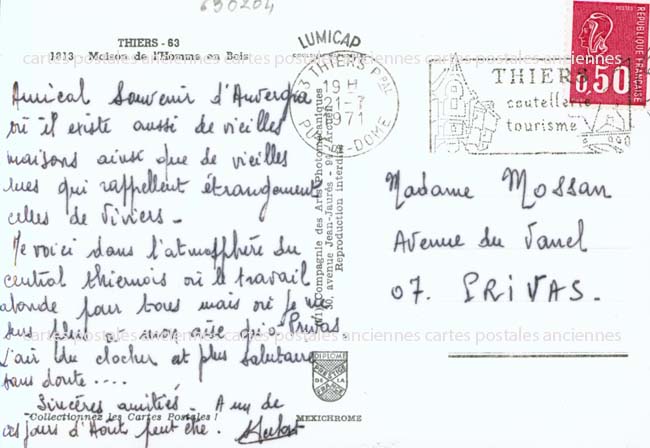 690204
THIERS - 63
1813 Maison de l'Homme en Bois
LUMICAP
cartes postales anciennes cartes postales anciennes cartes postales anciennes
Amical souvenir d'Auvergne
où il existe aussi de vieilles
maisons ainsi que de vieilles
rues qui rappellent étrangement
celles de Viviers -
Me voici dans l'atmosphère du
central thiernois où le travail
abonde pour tous mais où je me
sens plus à mon aise qu'à Privas.
L'air du clocher est plus salutaire
sans doute ....
Sincères amitiés - A un de
ces jours d'Août peut-être.
Collectionnez les Cartes Postales !
Compagnie des Arts Photomécaniques
30, avenue Jean-Jaurès - 94 Arcueil
Reproduction interdite
DIPLOME
PRESTIGE
DE LA
FRANCE
MEXICHROME
63 THIERS PPAL
19 H
21-7
1971
PUY-DE-DOME
THIERS
coutellerie
tourisme
POSTES
0,50
RÉPUBLIQUE FRANÇAISE
Madame MOSSAN
Avenue du Vanel
07. PRIVAS.
cartes postales anciennes cartes postales anciennes cartes postales anciennes